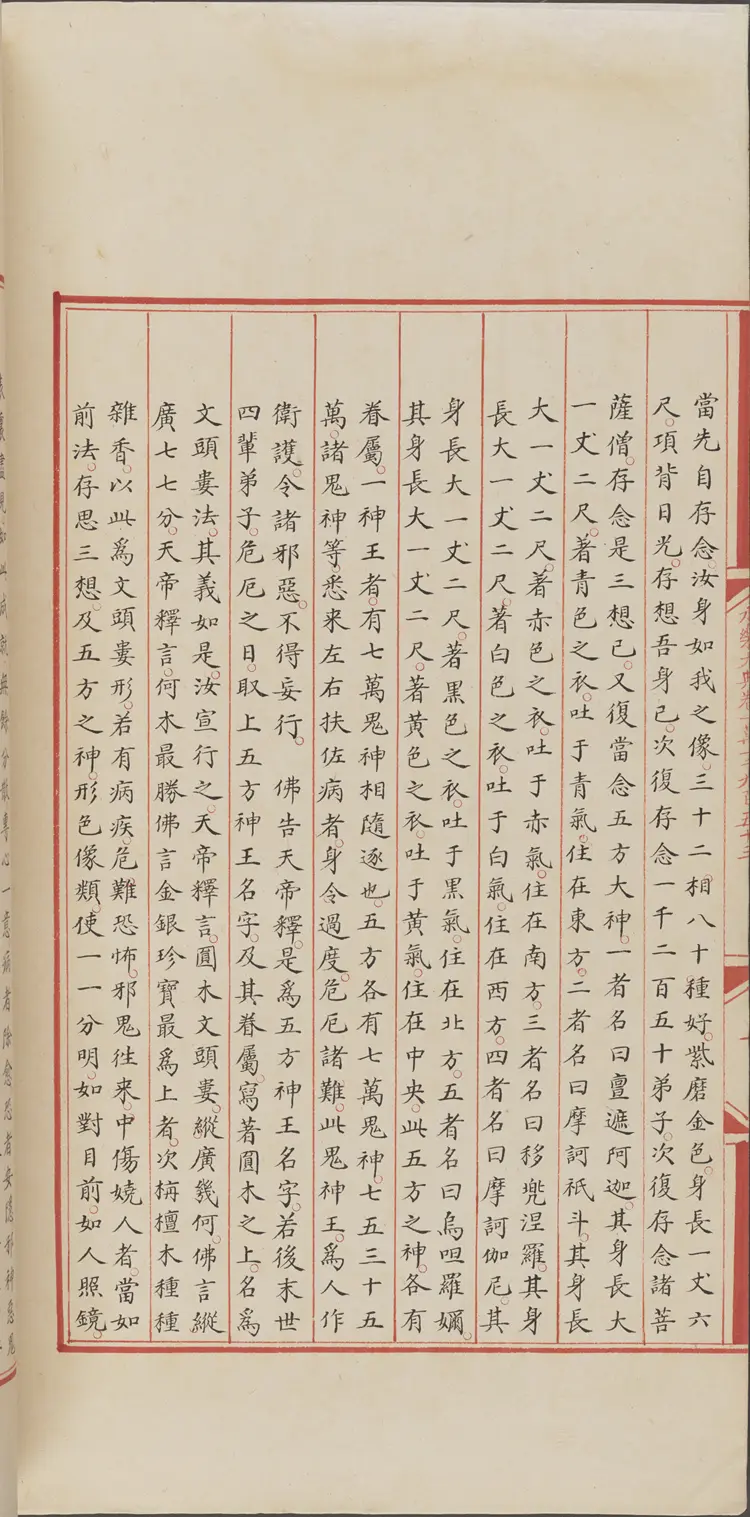 當先自存念。汝身如我之像。三十二相八十種好。紫磨金色。身長一丈六
尺。項背日光。存想吾身已。次復存念一千二百五十弟子。次復存念諸菩
薩僧。存念是三想已。又復當念五方大神。一者名曰亶遮阿迦。其身長大
一丈二尺。著青色之衣。吐于青氣。住在東方。二者名曰摩訶祇斗。其身長
大一丈二尺。著赤色之衣。吐于赤氣。住在南方。三者名曰移兜涅羅。其身
長大一丈二尺。著白色之衣。吐于白氣。住在西方。四者名曰摩訶伽尼。其
身長大一丈二尺。著黑色之衣。吐于黑氣。住在北方。五者名曰烏呾羅嬭。
其身長大一丈二尺。著黄色之衣。吐于黄氣。住在中央。此五方之神。各有
眷屬。一神王者。有七萬鬼神相隨逐也。五方各有七萬鬼神。七五三十五
萬。諸鬼神等。悉来左右扶佐病者。身令過度。危厄諸難。此鬼神王。爲人作
衛護。令諸邪惡。不得妄行。 佛告天帝釋。是爲五方神王名字。若後末世
四輩弟子。危厄之日。取上五方神王名字。及其眷屬。寫著圓木之上。名爲
文頭婁法。其義如是。汝宣行之。天帝釋言。圓木文頭婁。縱廣幾何。佛言縱
廣七七分。天帝釋言。何木最勝佛言金銀珍寶最爲上者。次栴檀木種種
雜香。以此爲文頭婁形。若有病疾。危難恐怖。邪鬼徃来。中傷嬈人者。當如
前法。存思三想。及五方之神。形色像類。使一一分明。如對目前。如人照鏡。